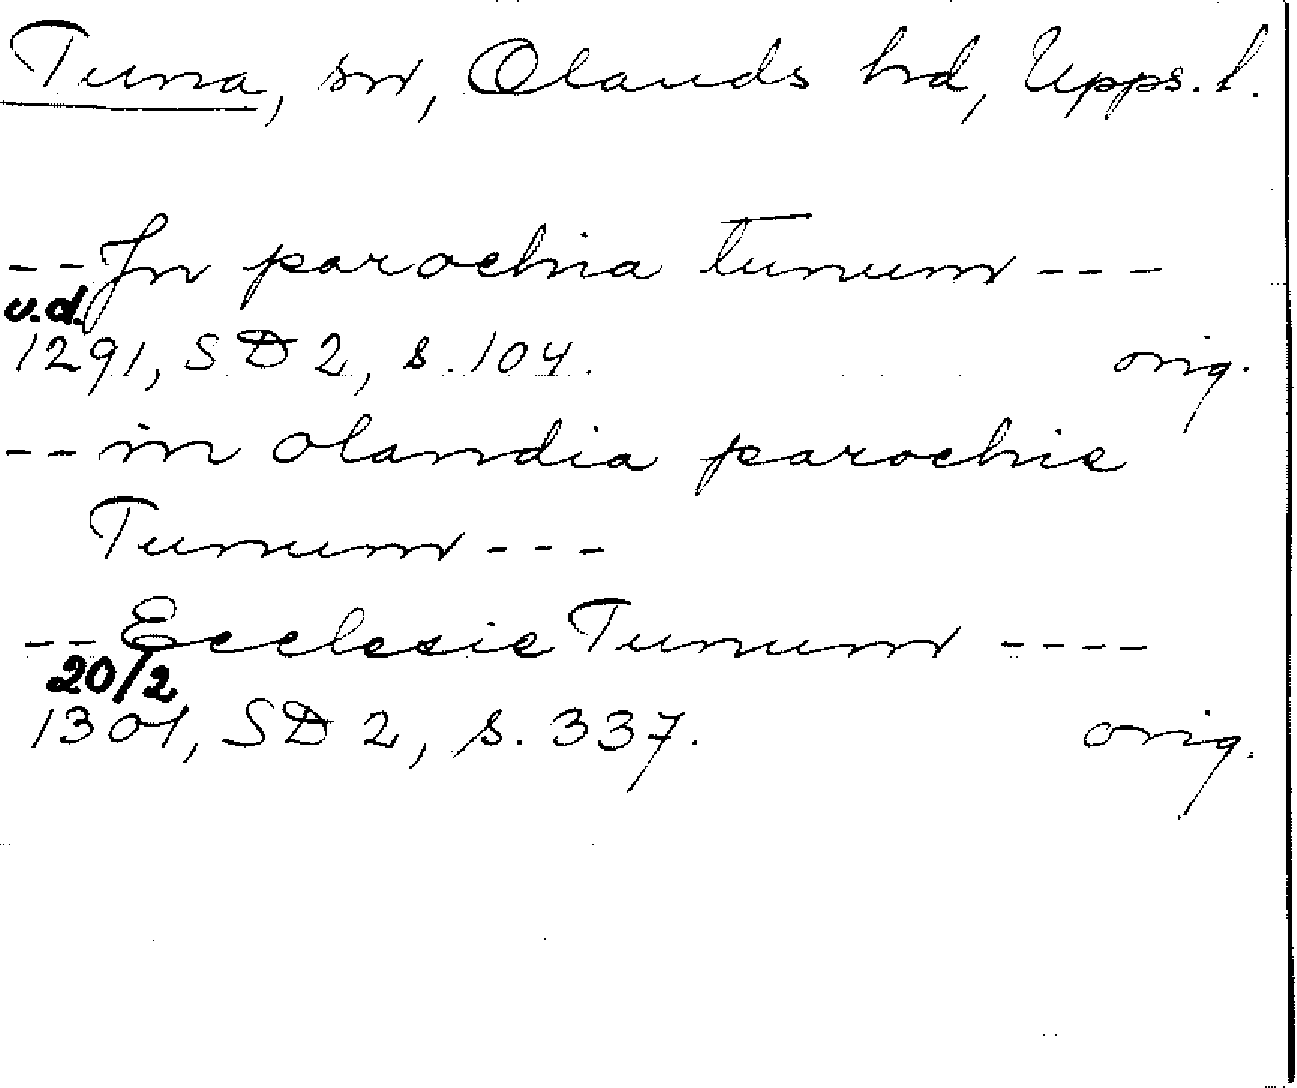 Tuna, sn, Olands hd, Upps. l.
-- Jn parochia tunum ---
u.d.
1291, SD 2, s. 104. orig.
-- in olandia parochie
Tunum ---
-- Ecclesie Tunum ----
20/2
1301, SD 2, s. 337. orig.